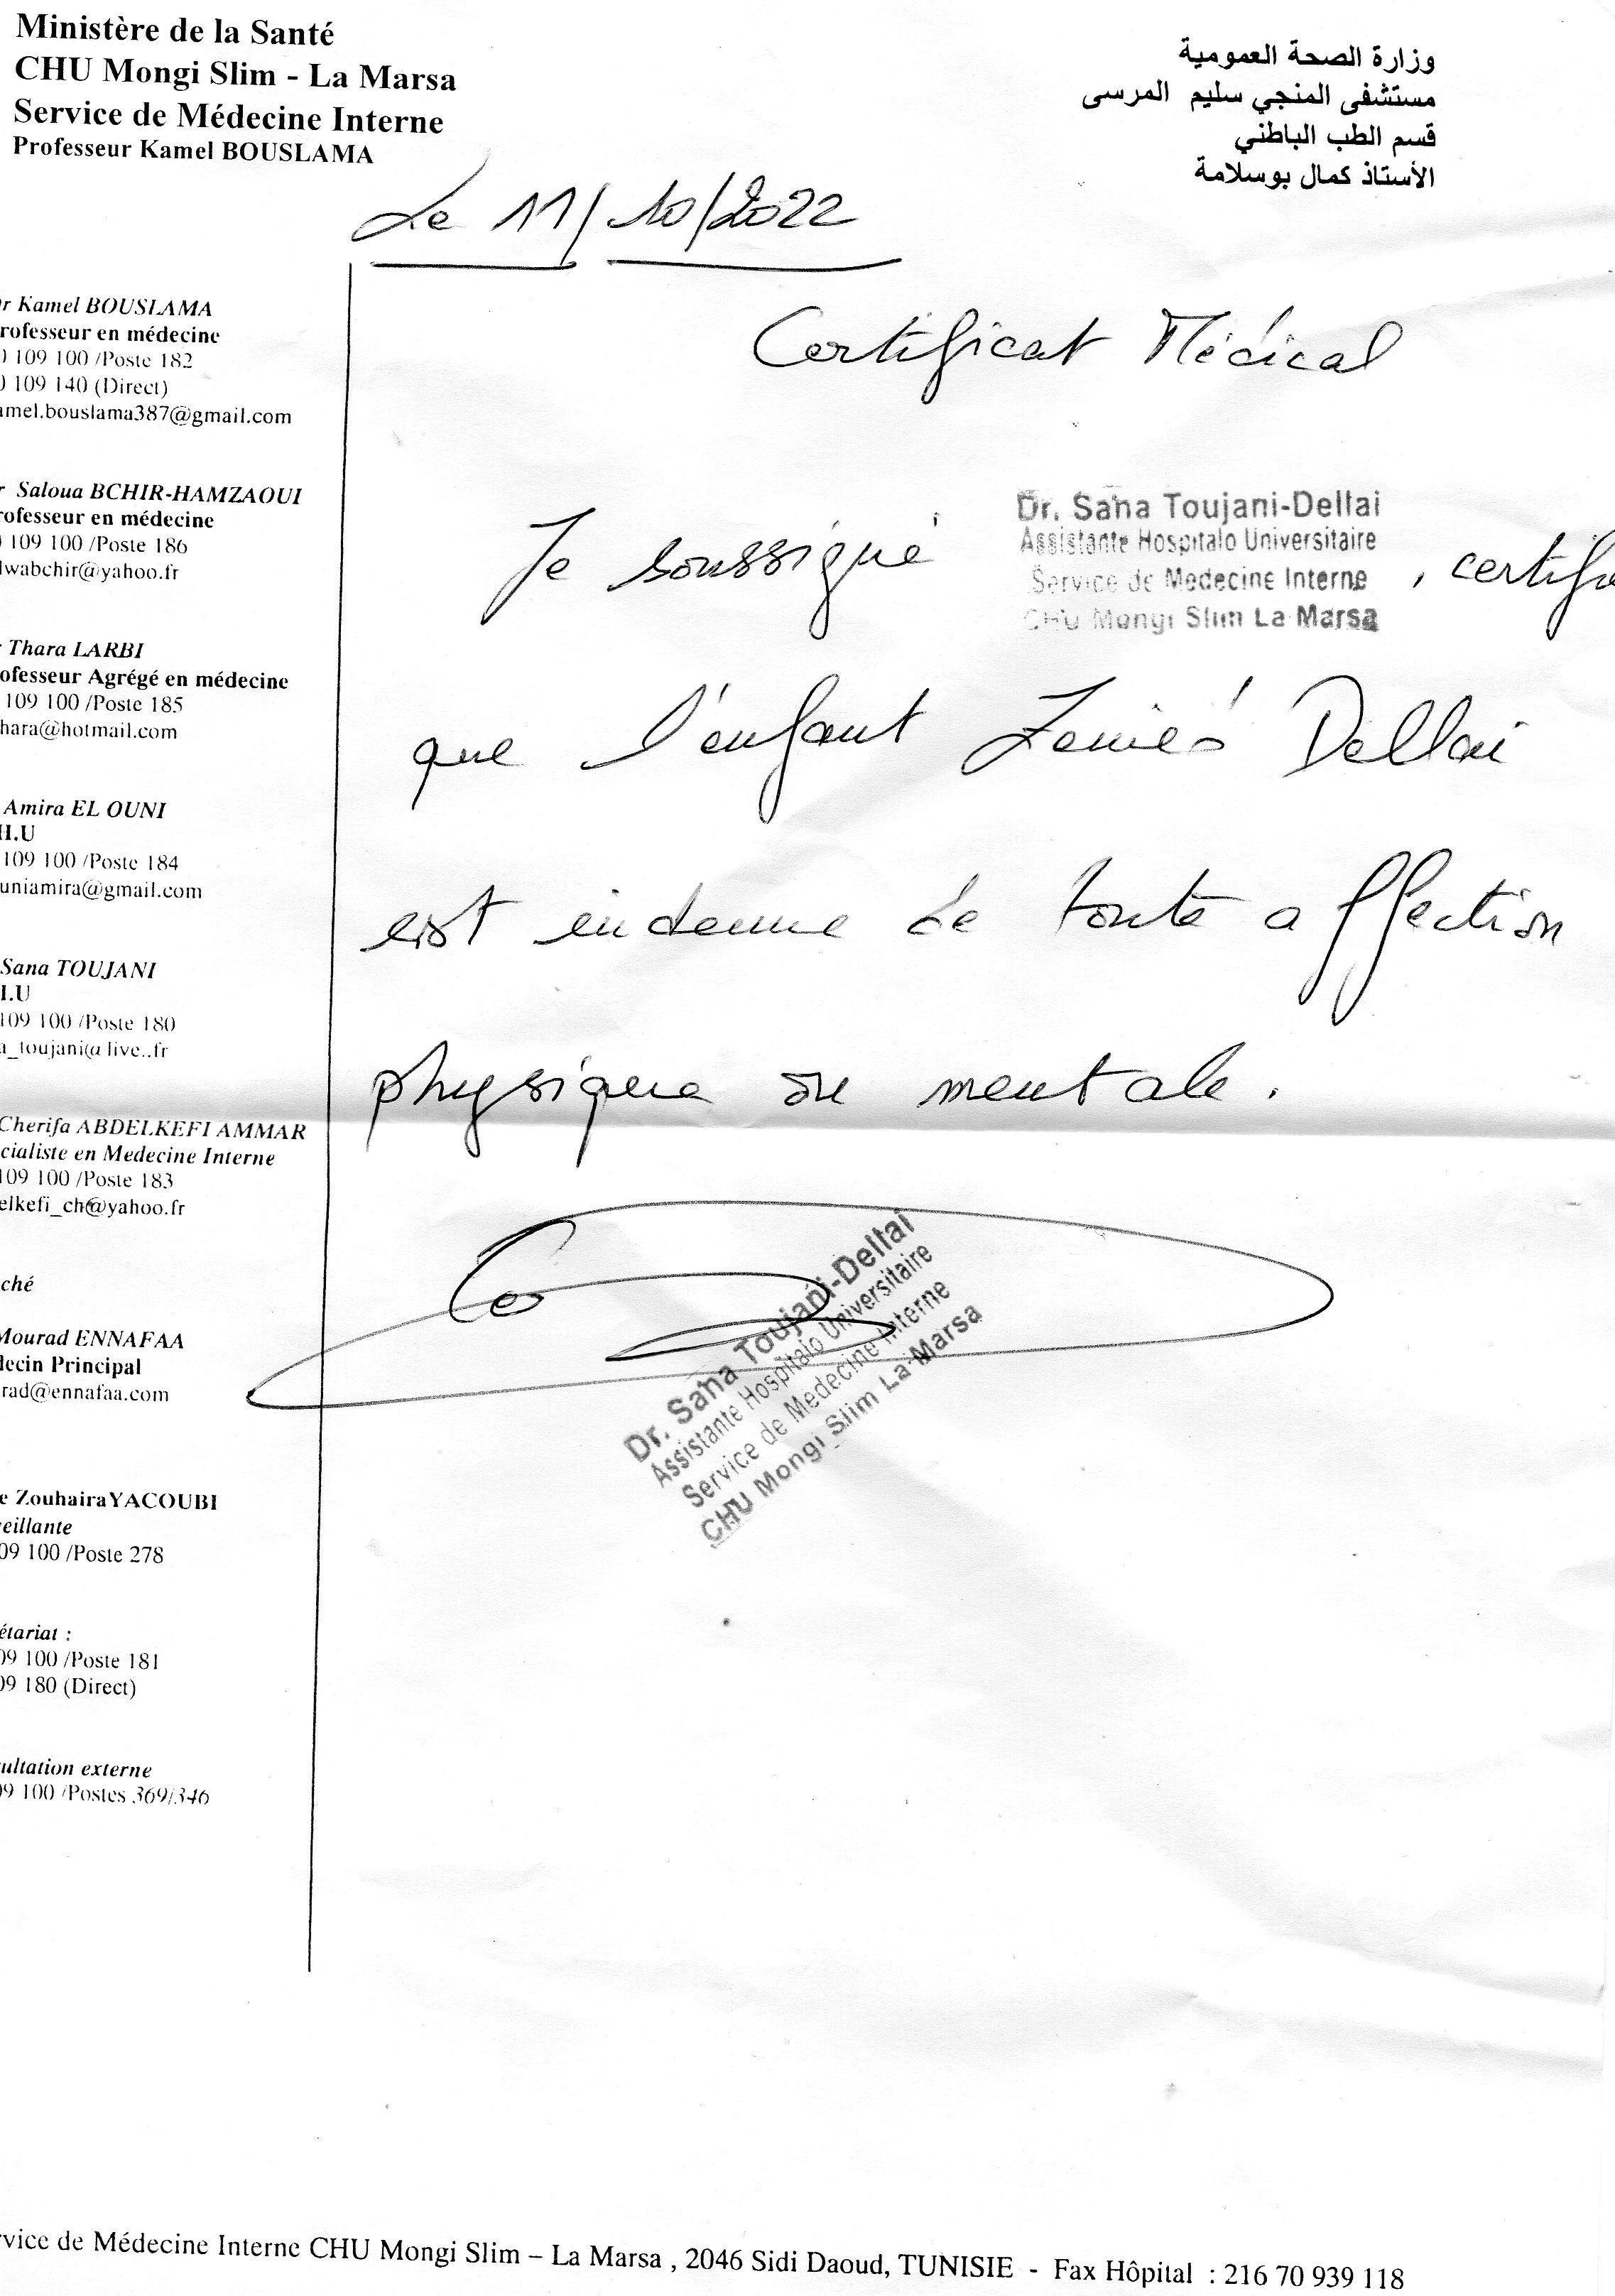 Ministère de la Santé
CHU Mongi Slim - La Marsa
Service de Médecine Interne
Professeur Kamel BOUSLAMA
وزارة الصحة العمومية
مستشفى المنجي سليم المرسى
قسم الطب الباطني
الأستاذ كمال بوسلامة
Le 11/10/2022
r Kamel BOUSLAMA
rofesseur en médecine
) 109 100 /Poste 182
) 109 140 (Direct)
amel.bouslama387@gmail.com
r Saloua BCHIR-HAMZAOUI
rofesseur en médecine
109 100 /Poste 186
lwabchir@yahoo.fr
Thara LARBI
ofesseur Agrégé en médecine
109 100 /Poste 185
hara@hotmail.com
Amira EL OUNI
H.U
109 100 /Poste 184
uniamira@gmail.com
Sana TOUJANI
I.U
109 100 /Poste 180
a_toujani@live..fr
Cherifa ABDELKEFI AMMAR
cialiste en Medecine Interne
109 100 /Poste 183
elkefi_ch@yahoo.fr
ché
Mourad ENNAFAA
decin Principal
rad@ennafaa.com
e Zouhaira YACOUBI
eillante
09 100 /Poste 278
étariat :
09 100 /Poste 181
09 180 (Direct)
ultation externe
09 100 /Postes 369/346
Certificat Médical
Je soussigné
Dr. Sana Toujani-Dellai
Assistante Hospitalo Universitaire
Service de Medecine Interne
CHU Mongi Slim La Marsa
, certifie
que l'enfant Dellai
est indemne de toute affection
physique ou mentale.
Dr. Sana Toujani-Dellai
Assistante Hospitalo Universitaire
Service de Medecine Interne
CHU Mongi Slim La Marsa
rvice de Médecine Interne CHU Mongi Slim – La Marsa , 2046 Sidi Daoud, TUNISIE - Fax Hôpital : 216 70 939 118